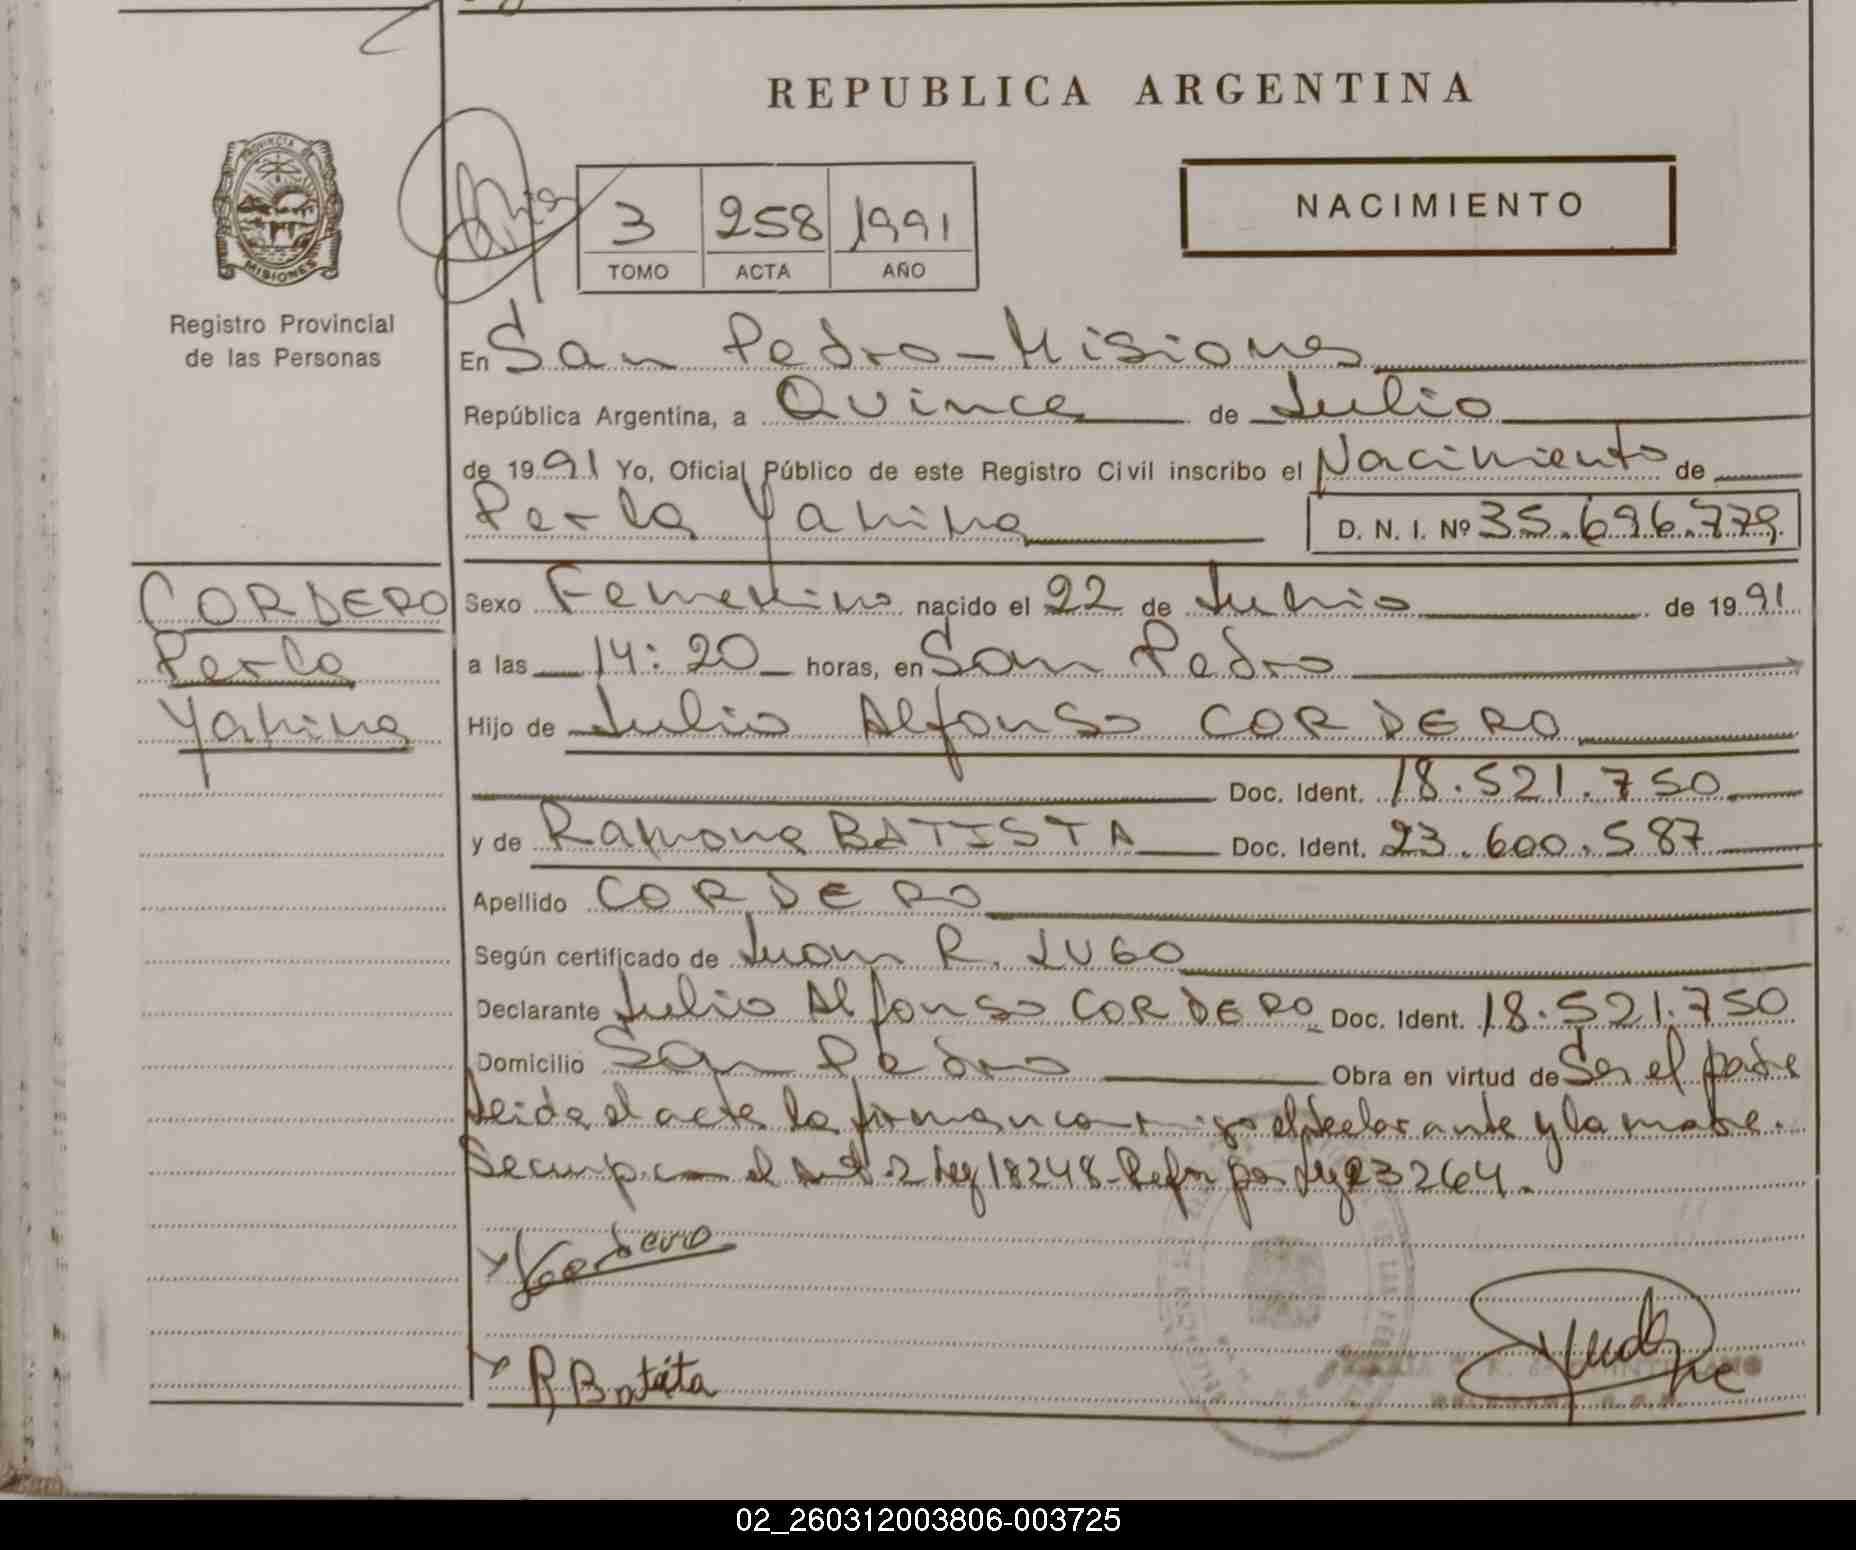 REPUBLICA ARGENTINA
PROVINCIA DE
MISIONES
Registro Provincial
de las Personas
3 258 1991
TOMO ACTA AÑO
NACIMIENTO
En San Pedro-Misiones
República Argentina, a Quince de Julio
de 1991 Yo, Oficial Público de este Registro Civil inscribo el Nacimiento de
Perla Yanina D. N. I. Nº 35.696.779
CORDERO
Perla
Yanina
Sexo Femenino nacido el 22 de Junio de 1991
a las 14:20 horas, en San Pedro
Hijo de Julio Alfonso CORDERO
Doc. Ident. 18.521.750
y de Ramona BATISTA Doc. Ident. 23.600.587
Apellido CORDERO
Según certificado de Juan R. LUGO
Declarante Julio Alfonso CORDERO Doc. Ident. 18.521.750
Domicilio San Pedro Obra en virtud de Ser el padre
Leida el acta la firman conmigo el declarante y la madre.
Se cumple con el Art. 2 Ley 18248-Refor por Ley 23264.
Cordero
R Batista
02_260312003806-003725